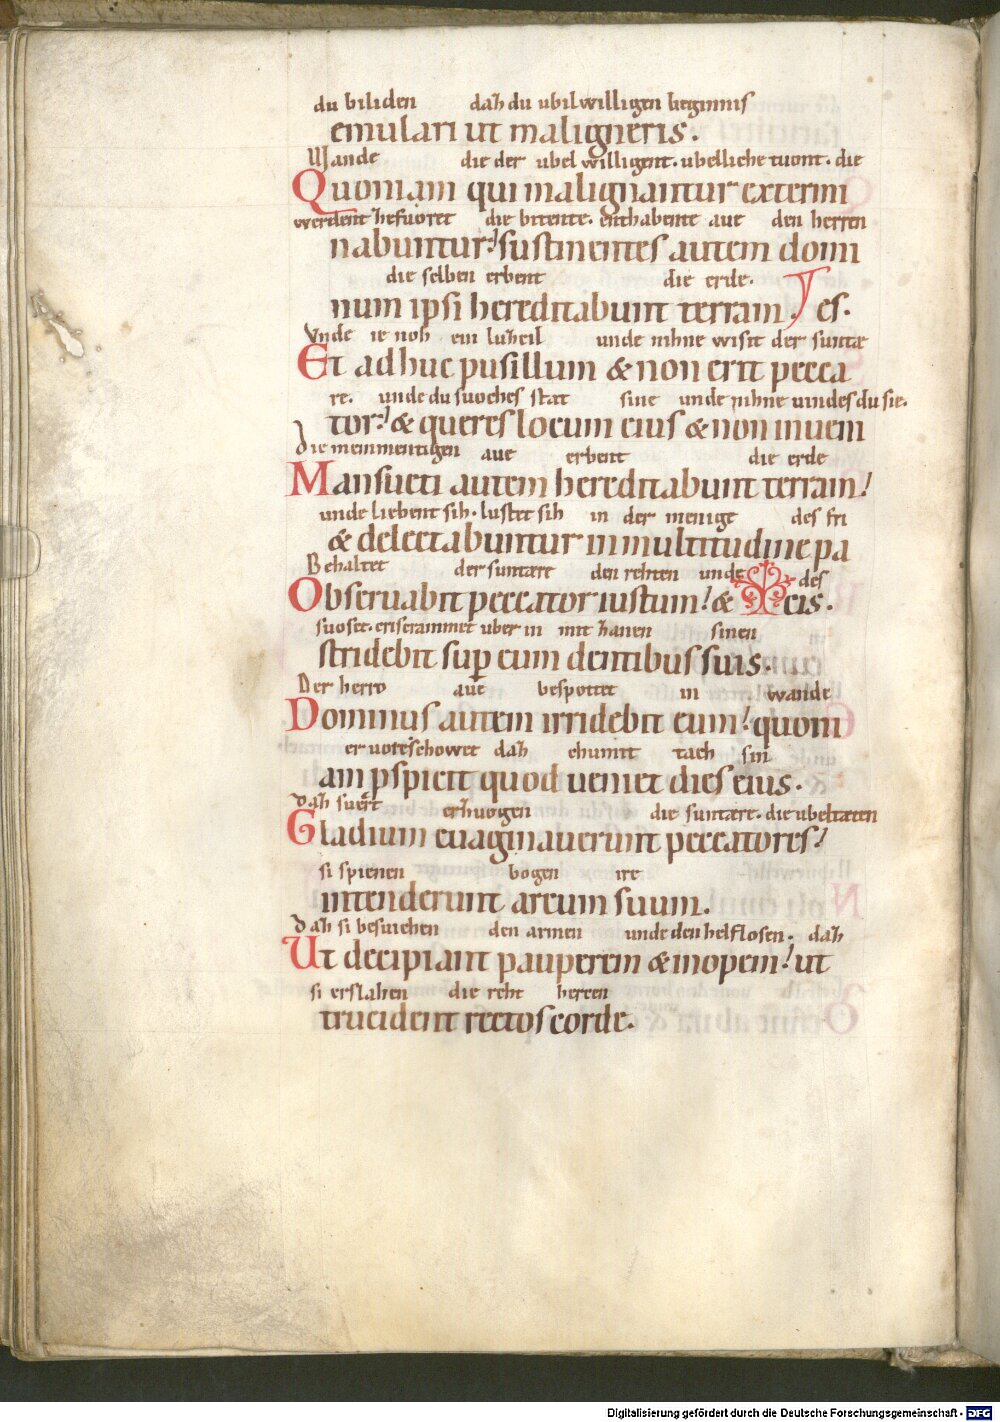 du biliden daꜩ du ubilwilligen beginnis
emulari ut maligneris.
Wande die der ubel willigent. ubelliche tuont. die
Quoniam qui malignantur extermi
werdent ꜩefuoret die bitente. enthabente aue den herren
nabuntur! sustinentes autem domi
die selben erbent die erde.
num ipsi hereditabunt terram. es.
Vnde ie noh ein luꜩeil unde nihne wisit der suntæ
Et adhuc pusillum & non erit pecca
re. unde du suoches stat sine unde nihne uindes du sie.
tor! & queres locum eius & non inueni
die memmentigen aue erbent die erde
Mansueti autem hereditabunt terram!
unde liebent sih. lustet sih in der menige des fri
& delectabuntur in multitudine pa
Behaltet der suntære den rehten unde des
Obseruabit peccator iustum! & cis.
suoset. er iscrammet uber in mit ꜩanen sinen
stridebit sup eum dentibus suis.
Der herro aue bespottet in wande
Dominus autem irridebit eum! quoni
er uoreschowet daꜩ chumit tach sin
am pspicit quod ueniet dies eius.
daꜩ suert erꜩuogen die suntære. die ubeltæten
Gladium euaginauerunt peccatores!
si spienen bogen ire
intenderunt arcum suum.
daꜩ si besuichen den armen unde den helflosen. daꜩ
Ut decipiant pauperem & inopem! ut
si erslahen die reht herren
trucident rectos corde.
Digitalisierung gefördert durch die Deutsche Forschungsgemeinschaft - DFG